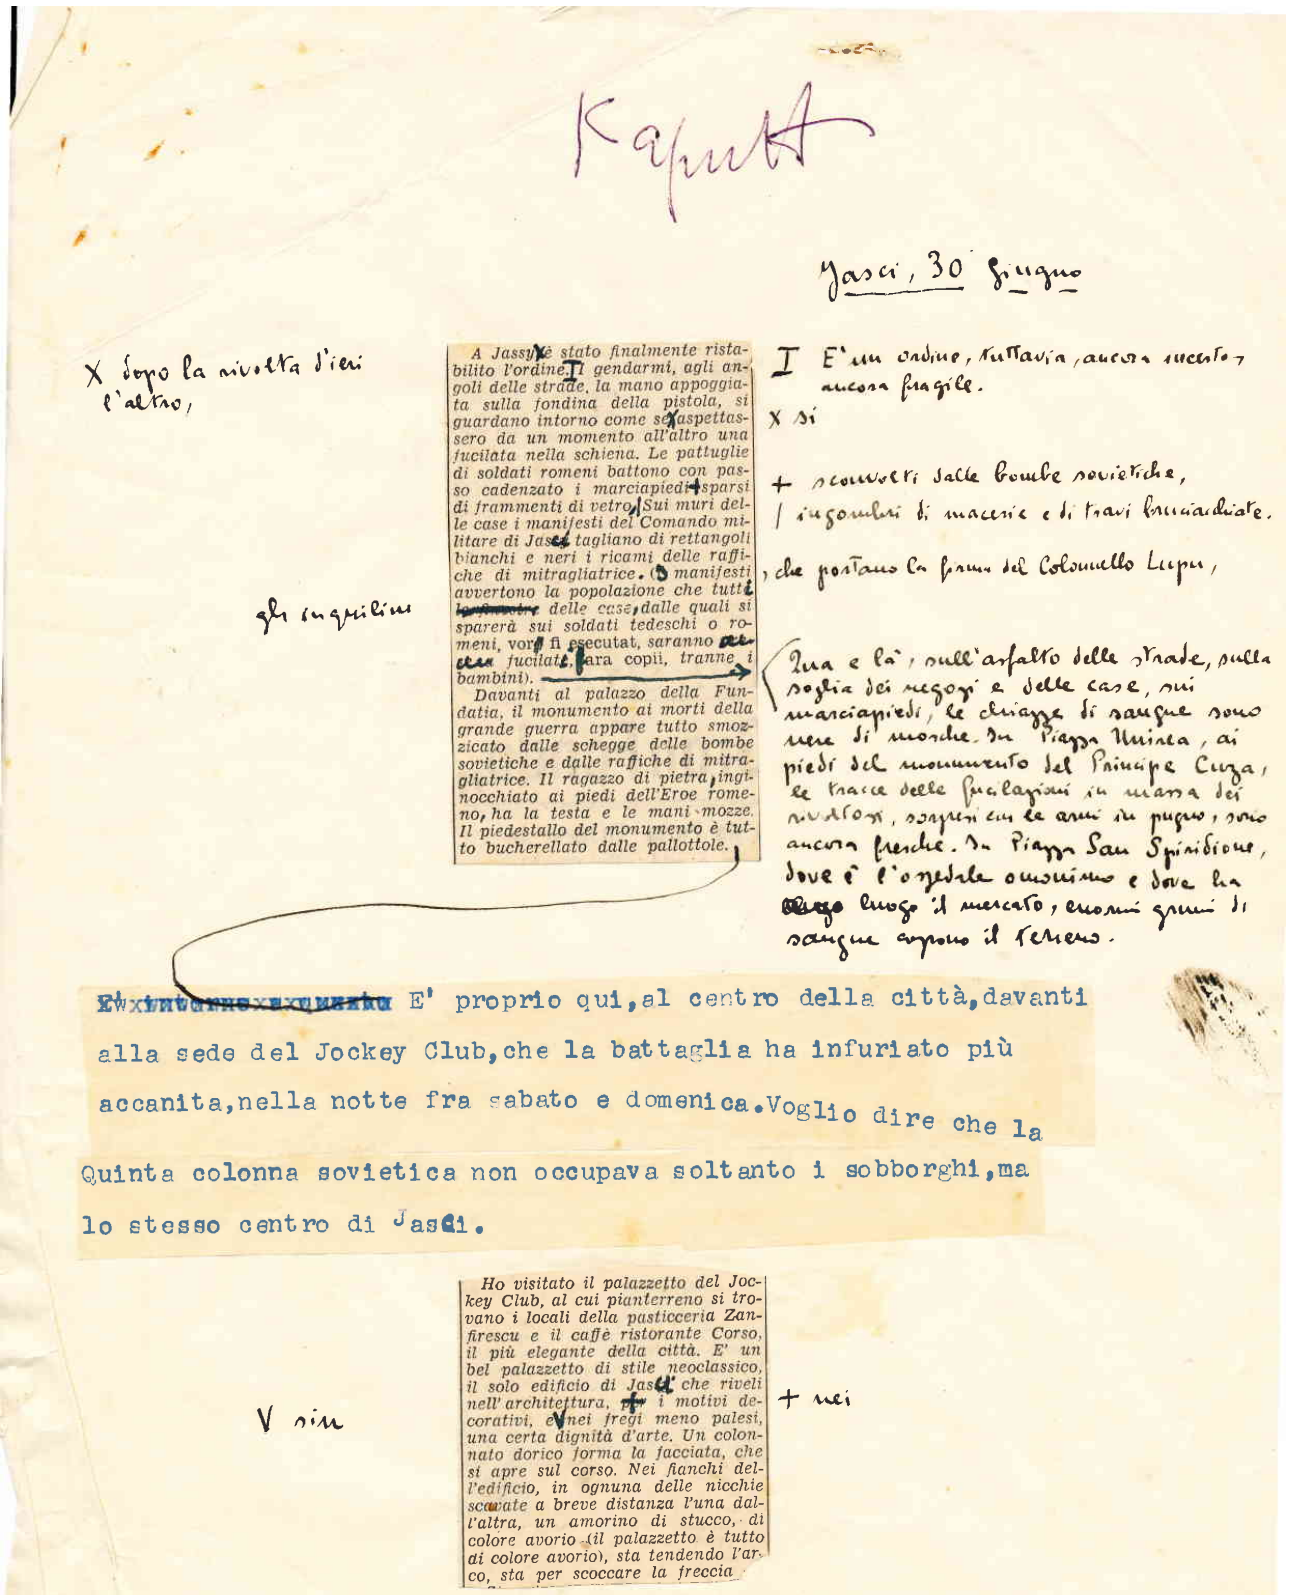 Kaputt
Jasci, 30 Giugno
X dopo la rivolta d'ieri
l'altro,
A Jassy X è stato finalmente rista-
bilito l'ordine. I I gendarmi, agli an-
goli delle strade, la mano appoggia-
ta sulla fondina della pistola, si
guardano intorno come se X aspettas-
sero da un momento all'altro una
fucilata nella schiena. Le pattuglie
di soldati romeni battono con pas-
so cadenzato i marciapiedi + sparsi
di frammenti di vetro, | Sui muri del-
le case i manifesti del Comando mi-
litare di Jasci tagliano di rettangoli
bianchi e neri i ricami delle raffi-
che di mitragliatrice. (I manifesti
avvertono la popolazione che tutti
delle case, dalle quali si
sparerà sui soldati tedeschi o ro-
meni, vor fi esecutat, saranno
fucilati, fara copii, tranne i
bambini).
Davanti al palazzo della Fun-
datia, il monumento ai morti della
grande guerra appare tutto smoz-
zicato dalle schegge delle bombe
sovietiche e dalle raffiche di mitra-
gliatrice. Il ragazzo di pietra, ingi-
nocchiato ai piedi dell'Eroe rome-
no, ha la testa e le mani mozze.
Il piedestallo del monumento è tut-
to bucherellato dalle pallottole.
gli inquilini
I E' un ordine, tuttavia, ancora incerto,
ancora fragile.
X si
+ sconvolti dalle bombe sovietiche,
| ingombri di macerie e di travi bruciacchiate.
, che portano la firma del Colonnello Lupu,
Qua e là, sull'asfalto delle strade, sulla
soglia dei negozi e delle case, sui
marciapiedi, le chiazze di sangue sono
nere di mosche. In Piazza Unirea, ai
piedi del monumento del Principe Cuza,
le tracce delle fucilazioni in massa dei
rivoltosi, sorpresi con le armi in pugno, sono
ancora fresche. In Piazza San Spiridione,
dove è l'ospedale omonimo e dove ha
luogo il mercato, enormi grumi di
sangue coprono il terreno.
E' proprio qui,al centro della città,davanti
alla sede del Jockey Club,che la battaglia ha infuriato più
accanita,nella notte fra sabato e domenica.Voglio dire che la
Quinta colonna sovietica non occupava soltanto i sobborghi,ma
lo stesso centro di Jasci.
Ho visitato il palazzetto del Joc-
key Club, al cui pianterreno si tro-
vano i locali della pasticceria Zan-
firescu e il caffè ristorante Corso,
il più elegante della città. E' un
bel palazzetto di stile neoclassico,
il solo edificio di Jasci che riveli
nell'architettura, + i motivi de-
corativi, e V nei fregi meno palesi,
una certa dignità d'arte. Un colon-
nato dorico forma la facciata, che
si apre sul corso. Nei fianchi del-
l'edificio, in ognuna delle nicchie
scavate a breve distanza l'una dal-
l'altra, un amorino di stucco, di
colore avorio (il palazzetto è tutto
di colore avorio), sta tendendo l'ar-
co, sta per scoccare la freccia
V sin
+ nei